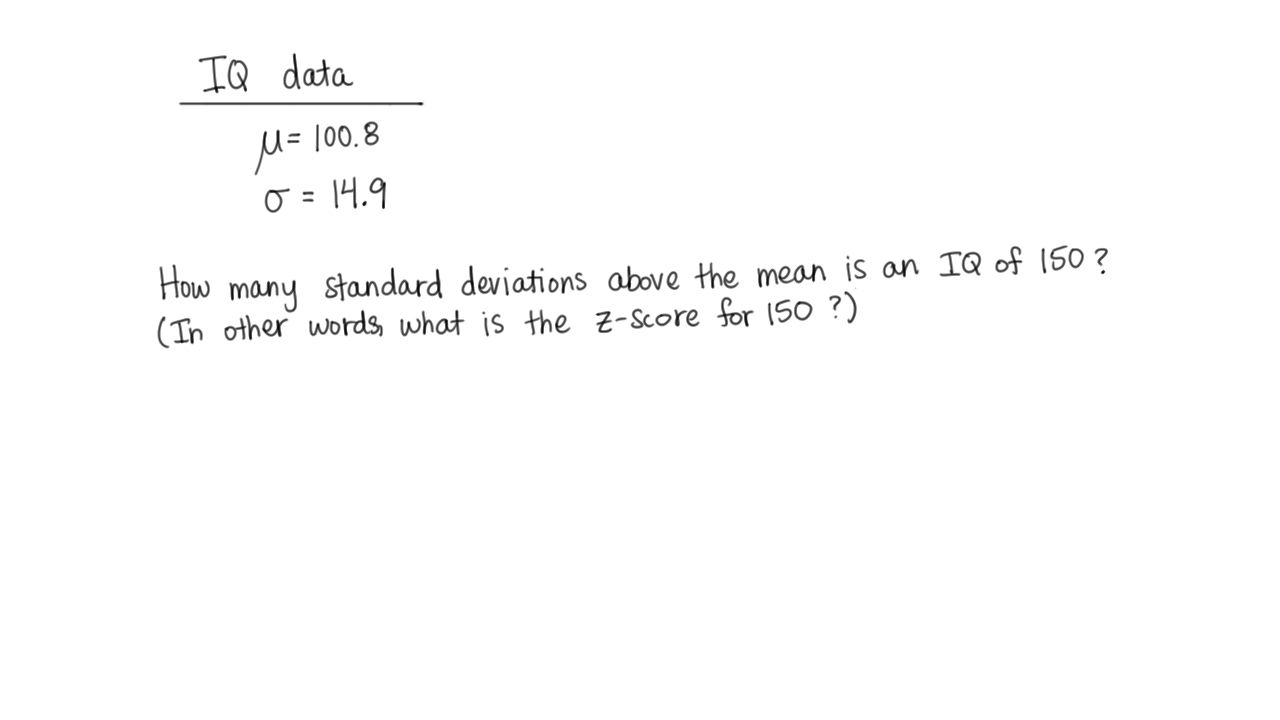 IQ data
μ= 100.8
σ = 14.9
How many standard deviations above the mean is an IQ of 150?
(In other words, what is the z-score for 150?)